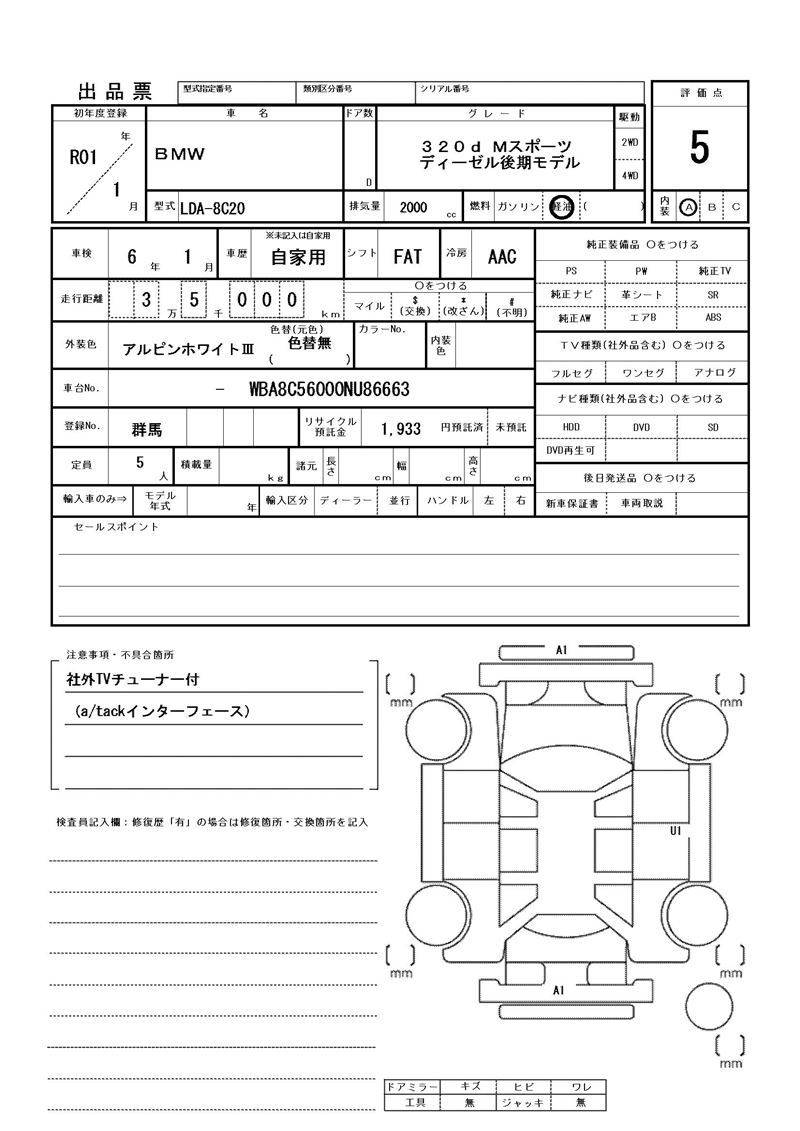 出品票 型式指定番号 類別区分番号 シリアル番号 評価点
初年度登録 車名 ドア数 グレード 駆動
R01 年 1 月 BMW D 320d Mスポーツ 2WD 5
ディーゼル後期モデル 4WD
型式 LDA-8C20 排気量 2000 cc 燃料 ガソリン 軽油 ( ) 内装 A B C
※未記入は自家用
車検 6 年 1 月 車歴 自家用 シフト FAT 冷房 AAC 純正装備品 〇をつける
PS PW 純正TV
〇をつける
走行距離 3 万 5 千 0 0 0 km マイル $ (交換) * (改ざん) # (不明) 純正ナビ 革シート SR
純正AW エアB ABS
外装色 アルピンホワイトⅢ 色替(元色) 色替無 ( ) カラーNo. 内装色 TV種類(社外品含む) 〇をつける
フルセグ ワンセグ アナログ
車台No. - WBA8C56000NU86663 ナビ種類(社外品含む) 〇をつける
登録No. 群馬 リサイクル預託金 1,933 円預託済 未預託 HDD DVD SD
DVD再生可
定員 5 人 積載量 kg 諸元 長さ cm 幅 cm 高さ cm 後日発送品 〇をつける
輸入車のみ⇒ モデル年式 年 輸入区分 ディーラー 並行 ハンドル 左 右 新車保証書 車両取説
セールスポイント
注意事項・不具合箇所
社外TVチューナー付
(a/tackインターフェース)
検査員記入欄:修復歴「有」の場合は修復箇所・交換箇所を記入
A1
mm mm
U1
mm mm
A1
mm
ドアミラー キズ ヒビ ワレ
工具 無 ジャッキ 無